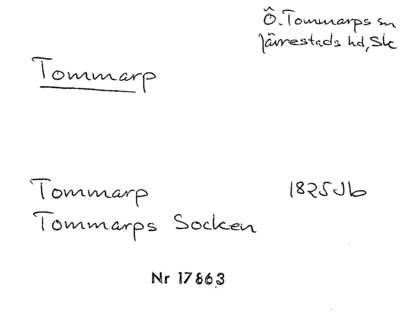 Ö. Tommarps sn
Järrestads hd, Sk
Tommarp
Tommarp 1825 Jb
Tommarps Socken
Nr 17863